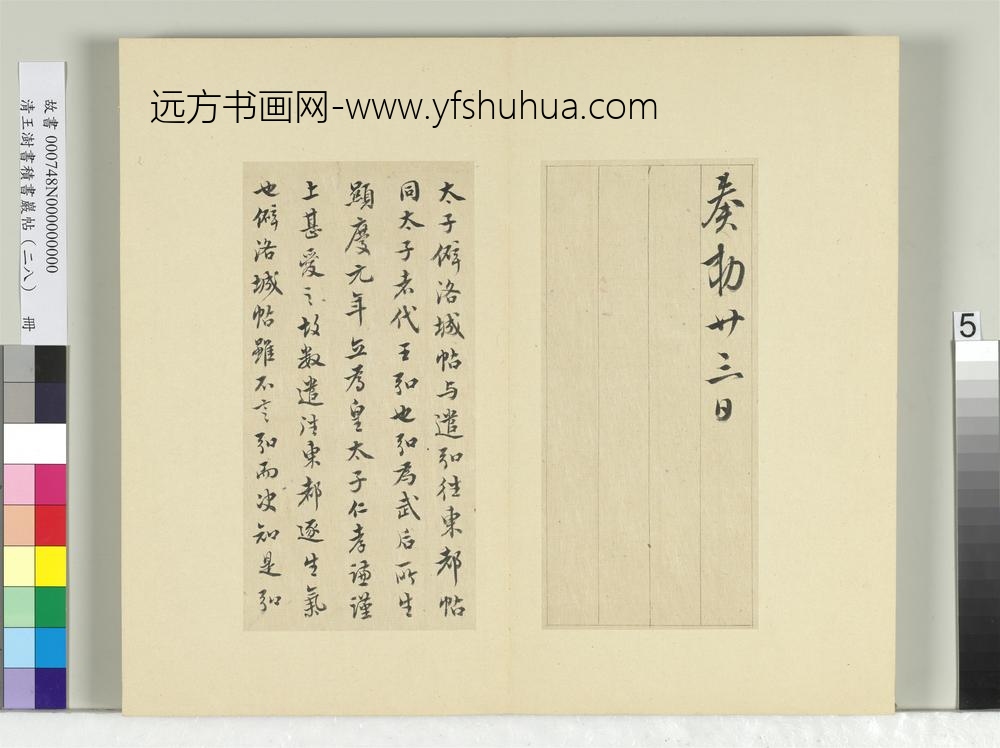 远方书画网-www.yfshuhua.com
故書 000748N000000000
清王澍書積書巖帖（二八） 冊
5
奏勅廿三日
太子僻洛城帖与遣弘往東都帖
同太子者代王弘也弘為武后所生
顯慶元年立為皇太子仁孝謙謹
上甚愛之故数遣往東都逐生氣
也僻洛城帖雖不言弘而决知是弘